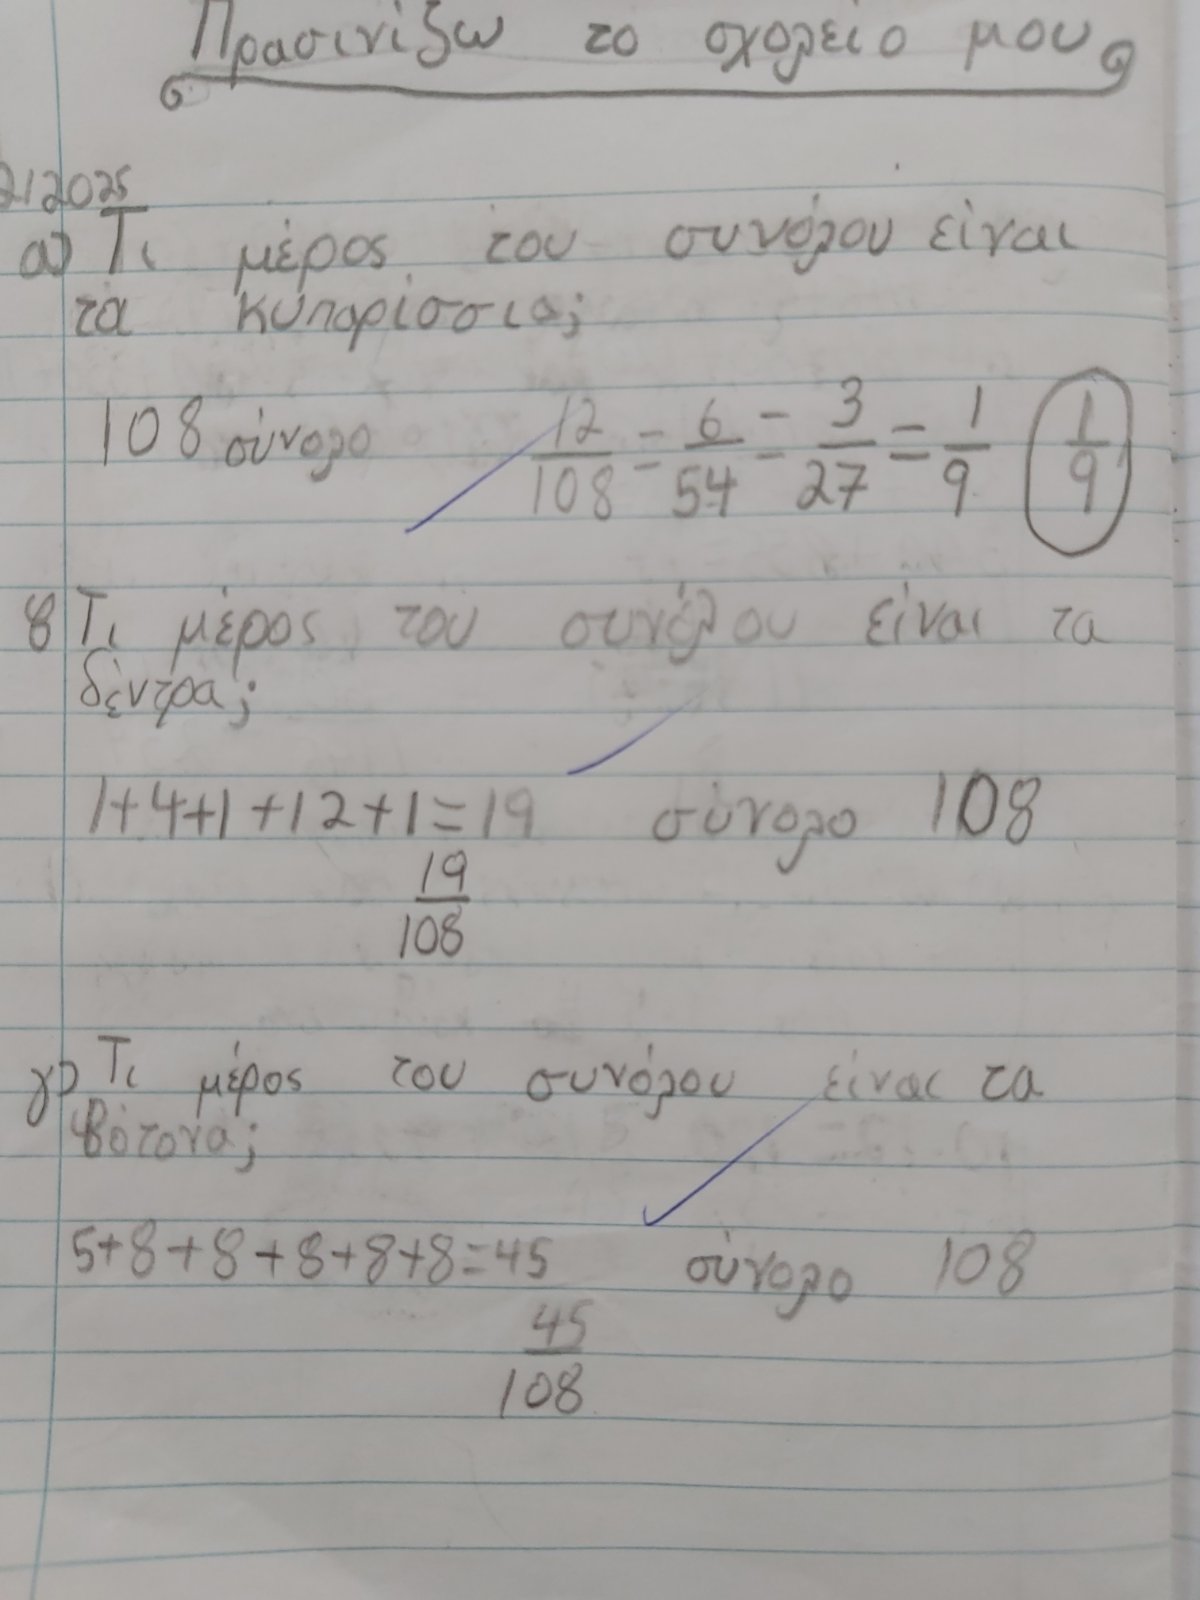 Πρασινίζω το σχολείο μου
2/2025
α) Τι μέρος του συνόλου είναι
τα κυπαρίσσια;
108 σύνολο 12/108 = 6/54 = 3/27 = 1/9 1/9
β Τι μέρος του συνόλου είναι τα
δέντρα;
1+4+1+12+1=19 σύνολο 108
19/108
γ) Τι μέρος του συνόλου είναι τα
βότανα;
5+8+8+8+8+8=45 σύνολο 108
45/108